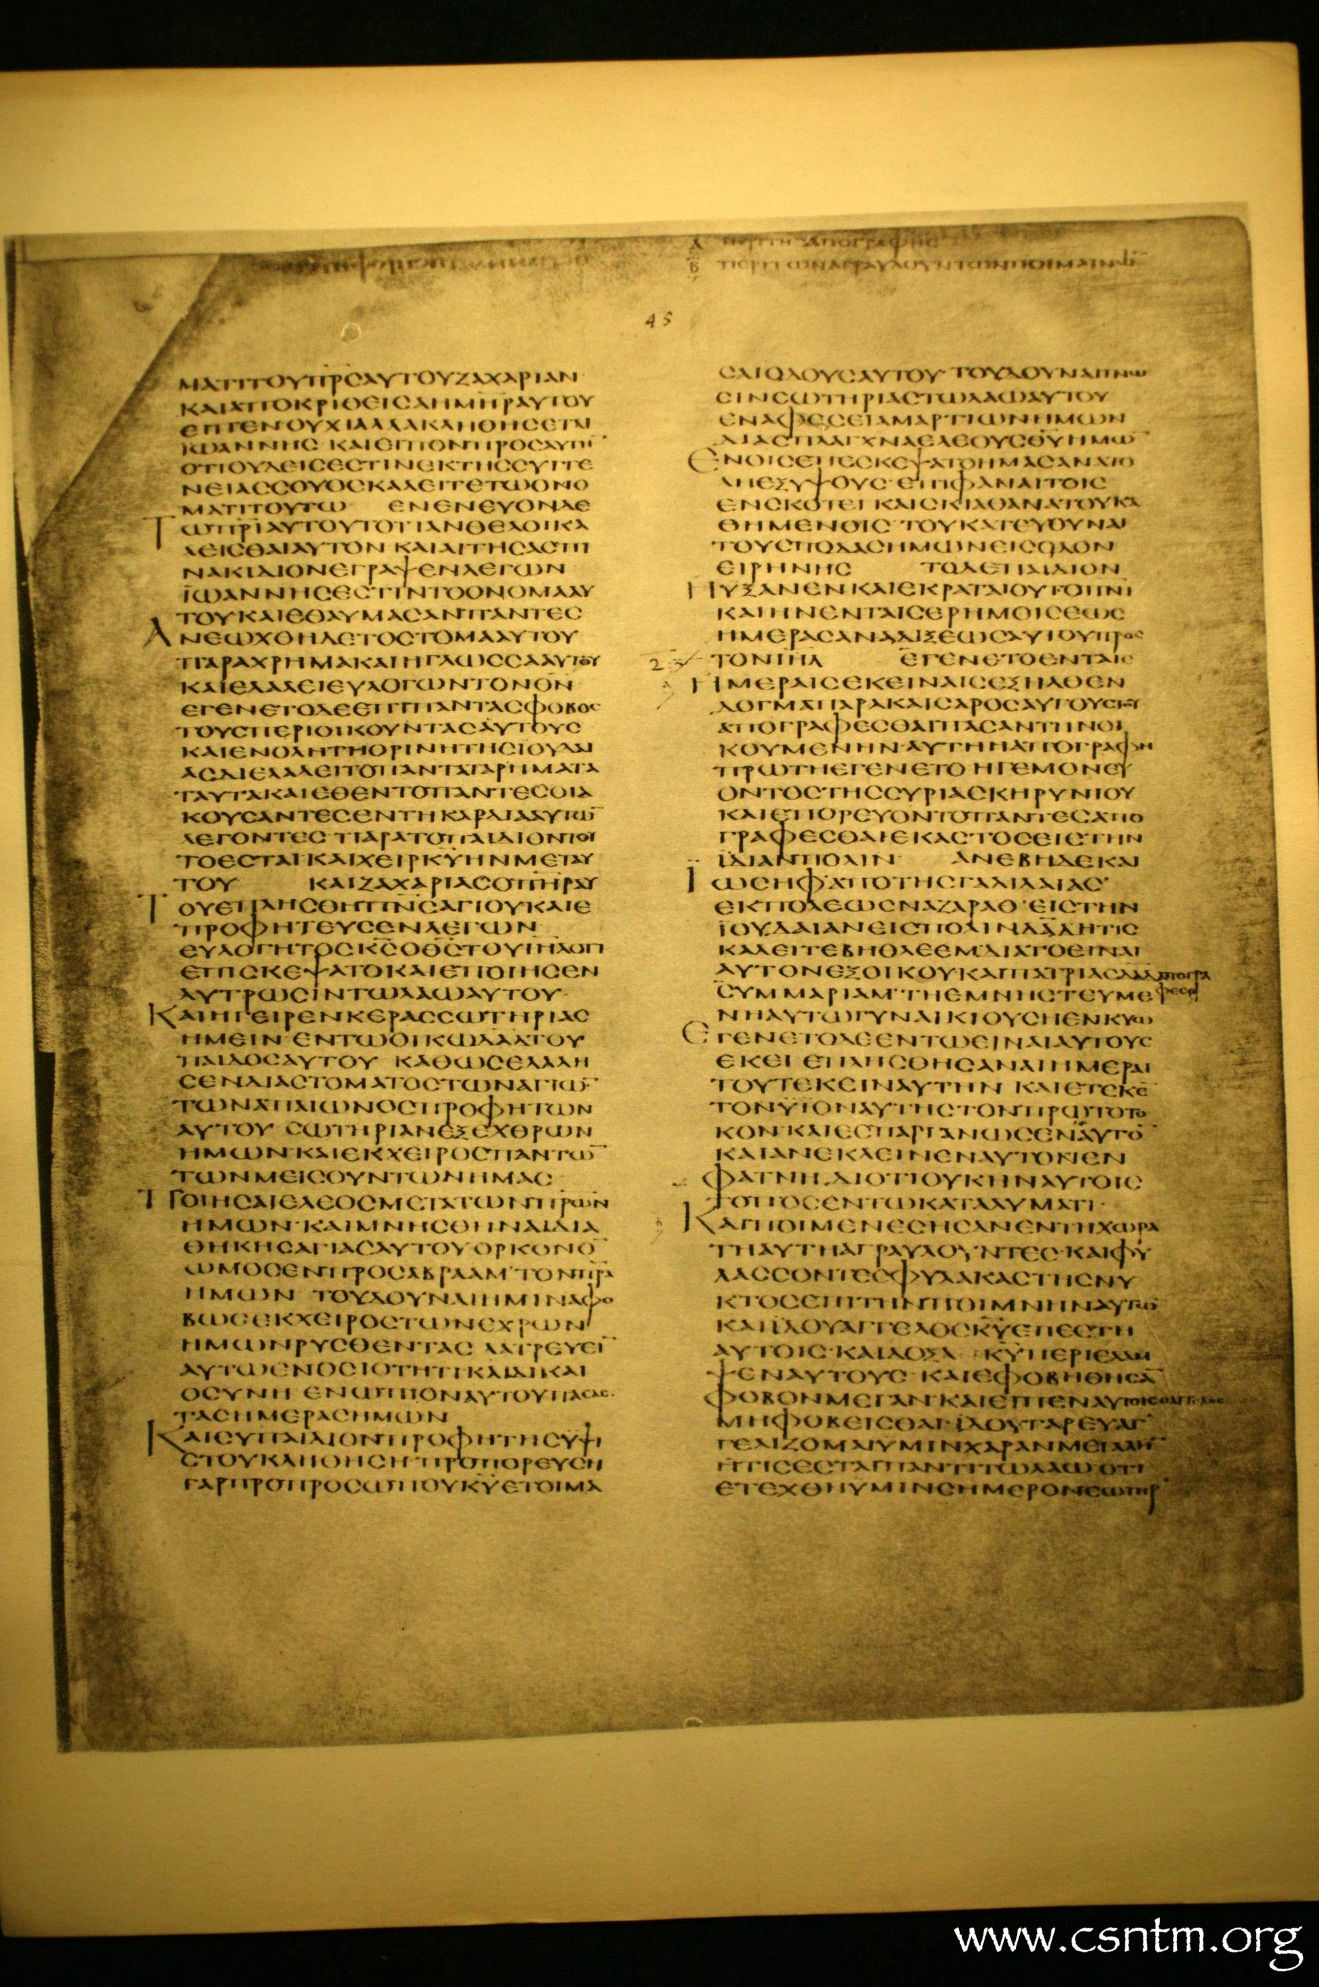 45
ΜΑΤΙΤΟΥΠΡΣΑΥΤΟΥΖΑΧΑΡΙΑΝ
ΚΑΙΑΠΟΚΡΙΘΕΙΣΑΗΜΗΡΑΥΤΟΥ
ΕΙΠΕΝΟΥΧΙΑΛΛΑΚΛΗΘΗΣΕΤΑΙ
ΙΩΑΝΝΗΣ ΚΑΙΕΙΠΟΝΠΡΟΣΑΥΤΗ
ΟΤΙΟΥΔΕΙΣΕΣΤΙΝΕΚΤΗΣΣΥΓΓΕ
ΝΕΙΑΣΣΟΥΟΣΚΑΛΕΙΤΕΤΩΟΝΟ
ΜΑΤΙΤΟΥΤΩ ΕΝΕΝΕΥΟΝΔΕ
ΤΩΠΡΙΑΥΤΟΥΤΟΤΙΑΝΘΕΛΟΙΚΑ
ΛΕΙΣΘΑΙΑΥΤΟΝ ΚΑΙΑΙΤΗΣΑΣΠΙ
ΝΑΚΙΔΙΟΝΕΓΡΑΨΕΝΛΕΓΩΝ
ΙΩΑΝΝΗΣΕΣΤΙΝΤΟΟΝΟΜΑΑΥ
ΤΟΥΚΑΙΕΘΑΥΜΑΣΑΝΠΑΝΤΕΣ
ΑΝΕΩΧΘΗΔΕΤΟΣΤΟΜΑΑΥΤΟΥ
ΠΑΡΑΧΡΗΜΑΚΑΙΗΓΛΩΣΣΑΑΥΤΟΥ
ΚΑΙΕΛΑΛΕΙΕΥΛΟΓΩΝΤΟΝΘΝ
ΕΓΕΝΕΤΟΔΕΕΠΙΠΑΝΤΑΣΦΟΒΟΣ
ΤΟΥΣΠΕΡΙΟΙΚΟΥΝΤΑΣΑΥΤΟΥΣ
ΚΑΙΕΝΟΛΗΤΗΟΡΙΝΗΤΗΣΙΟΥΔΑΙ
ΑΣΔΙΕΛΑΛΕΙΤΟΠΑΝΤΑΤΑΡΗΜΑΤΑ
ΤΑΥΤΑΚΑΙΕΘΕΝΤΟΠΑΝΤΕΣΟΙΑ
ΚΟΥΣΑΝΤΕΣΕΝΤΗΚΑΡΔΙΑΑΥΤΩ
ΛΕΓΟΝΤΕΣ ΤΙΑΡΑΤΟΠΑΙΔΙΟΝΤΟΥ
ΤΟΕΣΤΑΙΚΑΙΧΕΙΡΚΥΗΝΜΕΤΑΥ
ΤΟΥ ΚΑΙΖΑΧΑΡΙΑΣΟΠΗΡΑΥ
ΤΟΥΕΠΛΗΣΘΗΠΝΣΑΓΙΟΥΚΑΙΕ
ΠΡΟΦΗΤΕΥΣΕΝΛΕΓΩΝ
ΕΥΛΟΓΗΤΟΣΚΣΟΘΣΤΟΥΙΗΛΟΤΙ
ΕΠΕΣΚΕΨΑΤΟΚΑΙΕΠΟΙΗΣΕΝ
ΛΥΤΡΩΣΙΝΤΩΛΑΩΑΥΤΟΥ
ΚΑΙΗΓΕΙΡΕΝΚΕΡΑΣΣΩΤΗΡΙΑΣ
ΗΜΕΙΝ ΕΝΤΩΟΙΚΩΔΑΔΤΟΥ
ΠΑΙΔΟΣΑΥΤΟΥ ΚΑΘΩΣΕΛΑΛΗ
ΣΕΝΔΙΑΣΤΟΜΑΤΟΣΤΩΝΑΓΙΩ
ΤΩΝΑΠΑΙΩΝΟΣΠΡΟΦΗΤΩΝ
ΑΥΤΟΥ ΣΩΤΗΡΙΑΝΕΞΕΧΘΡΩΝ
ΗΜΩΝ ΚΑΙΕΚΧΕΙΡΟΣΠΑΝΤΩ
ΤΩΝΜΕΙΣΟΥΝΤΩΝΗΜΑΣ
ΠΟΙΗΣΑΙΕΛΕΟΣΜΕΤΑΤΩΝΠΡΩΝ
ΗΜΩΝ ΚΑΙΜΝΗΣΘΗΝΑΙΔΙΑ
ΘΗΚΗΣΑΓΙΑΣΑΥΤΟΥΟΡΚΟΝΟ
ΩΜΟΣΕΝΠΡΟΣΑΒΡΑΑΜ ΤΟΝΠΡΑ
ΗΜΩΝ ΤΟΥΔΟΥΝΑΙΗΜΙΝΑΦΟ
ΒΩΣΕΚΧΕΙΡΟΣΤΩΝΕΧΡΩΝ
ΗΜΩΝΡΥΣΘΕΝΤΑΣ ΛΑΤΡΕΥΕΙ
ΑΥΤΩΕΝΟΣΙΟΤΗΤΙΚΑΙΔΙΚΑΙ
ΟΣΥΝΗ ΕΝΩΠΙΟΝΑΥΤΟΥΠΑΣΑΣ
ΤΑΣΗΜΕΡΑΣΗΜΩΝ
ΚΑΙΣΥΠΑΙΔΙΟΝΠΡΟΦΗΤΗΣΥΨΙ
ΣΤΟΥΚΛΗΘΗΣΗ ΠΡΟΠΟΡΕΥΣΗ
ΓΑΡΠΡΟΠΡΟΣΩΠΟΥΚΥΕΤΟΙΜΑ
ΣΑΙΟΔΟΥΣΑΥΤΟΥ ΤΟΥΔΟΥΝΑΙΓΝΩ
ΣΙΝΣΩΤΗΡΙΑΣΤΩΛΑΩΑΥΤΟΥ
ΕΝΑΦΕΣΕΙΑΜΑΡΤΙΩΝΗΜΩΝ
ΔΙΑΣΠΛΑΓΧΝΑΕΛΕΟΥΣΘΥΗΜΩ
ΕΝΟΙΣΕΠΕΣΚΕΨΑΤΟΗΜΑΣΑΝΑΤΟ
ΛΗΕΞΥΨΟΥΣ ΕΠΙΦΑΝΑΙΤΟΙΣ
ΕΝΣΚΟΤΕΙ ΚΑΙΣΚΙΑΘΑΝΑΤΟΥΚΑ
ΘΗΜΕΝΟΙΣ ΤΟΥΚΑΤΕΥΘΥΝΑΙ
ΤΟΥΣΠΟΔΑΣΗΜΩΝΕΙΣΟΔΟΝ
ΕΙΡΗΝΗΣ ΤΟΔΕΠΑΙΔΙΟΝ
ΗΥΞΑΝΕΝΚΑΙΕΚΡΑΤΑΙΟΥΤΟΠΝΙ
ΚΑΙΗΝΕΝΤΑΙΣΕΡΗΜΟΙΣΕΩΣ
ΗΜΕΡΑΣΑΝΑΔΙΞΕΩΣΑΥΤΟΥΠΡΟΣ
ΤΟΝΙΗΛ ΕΓΕΝΕΤΟΕΝΤΑΙΣ
ΗΜΕΡΑΙΣΕΚΕΙΝΑΙΣΕΞΗΛΘΕΝ
ΔΟΓΜΑΠΑΡΑΚΑΙΣΑΡΟΣΑΥΓΟΥΣΤΟΥ
ΑΠΟΓΡΑΦΕΣΘΑΙΠΑΣΑΝΤΗΝΟΙ
ΚΟΥΜΕΝΗΝ ΑΥΤΗΗΑΠΟΓΡΑΦΗ
ΠΡΩΤΗΕΓΕΝΕΤΟ ΗΓΕΜΟΝΕΥ
ΟΝΤΟΣΤΗΣΣΥΡΙΑΣΚΗΡΥΝΙΟΥ
ΚΑΙΕΠΟΡΕΥΟΝΤΟΠΑΝΤΕΣΑΠΟ
ΓΡΑΦΕΣΘΑΙΕΚΑΣΤΟΣΕΙΣΤΗΝ
ΙΔΙΑΝΠΟΛΙΝ ΑΝΕΒΗΔΕΚΑΙ
ΙΩΣΗΦΑΠΟΤΗΣΓΑΛΙΛΑΙΑΣ
ΕΚΠΟΛΕΩΣΝΑΖΑΡΑΘ ΕΙΣΤΗΝ
ΙΟΥΔΑΙΑΝΕΙΣΠΟΛΙΝΔΑΔΗΤΙΣ
ΚΑΛΕΙΤΕΒΗΘΛΕΕΜΔΙΑΤΟΕΙΝΑΙ
ΑΥΤΟΝΕΞΟΙΚΟΥΚΑΙΠΑΤΡΙΑΣΔΑΔ ΑΠΟΓΡΑ
ΣΥΜΜΑΡΙΑΜ ΤΗΕΜΝΗΣΤΕΥΜΕ
ΝΗΑΥΤΩΓΥΝΑΙΚΙΟΥΣΗΕΝΚΥΩ
ΕΓΕΝΕΤΟΔΕΕΝΤΩΕΙΝΑΙΑΥΤΟΥΣ
ΕΚΕΙ ΕΠΛΗΣΘΗΣΑΝΑΙΗΜΕΡΑΙ
ΤΟΥΤΕΚΕΙΝΑΥΤΗΝ ΚΑΙΕΤΕΚΕ
ΤΟΝΥΙΟΝΑΥΤΗΣΤΟΝΠΡΩΤΟΤΟ
ΚΟΝ ΚΑΙΕΣΠΑΡΓΑΝΩΣΕΝΑΥΤΟ
ΚΑΙΑΝΕΚΛΕΙΝΕΝΑΥΤΟΝΕΝ
ΦΑΤΝΗ ΔΙΟΤΙΟΥΚΗΝΑΥΤΟΙΣ
ΤΟΠΟΣΕΝΤΩΚΑΤΑΛΥΜΑΤΙ
ΚΑΙΠΟΙΜΕΝΕΣΗΣΑΝΕΝΤΗΧΩΡΑ
ΤΗΑΥΤΗΑΓΡΑΥΛΟΥΝΤΕΣ ΚΑΙΦΥ
ΛΑΣΣΟΝΤΕΣΦΥΛΑΚΑΣΤΗΣΝΥ
ΚΤΟΣΕΠΙΤΗΝΠΟΙΜΝΗΝΑΥΤΩ
ΚΑΙΙΔΟΥΑΓΓΕΛΟΣΚΥΕΠΕΣΤΗ
ΑΥΤΟΙΣ ΚΑΙΔΟΞΑ ΚΥΠΕΡΙΕΛΑΜ
ΨΕΝΑΥΤΟΥΣ ΚΑΙΕΦΟΒΗΘΗΣΑ
ΦΟΒΟΝΜΕΓΑΝ ΚΑΙΕΙΠΕΝΑΥΤΟΙΣΟΑΓΓΕΛΟΣ
ΜΗΦΟΒΕΙΣΘΑΙ ΙΔΟΥΓΑΡΕΥΑΓ
ΓΕΛΙΖΟΜΑΙΥΜΙΝΧΑΡΑΝΜΕΓΑΛΗ
ΗΤΙΣΕΣΤΑΙΠΑΝΤΙΤΩΛΑΩΟΤΙ
ΕΤΕΧΘΗΥΜΙΝΣΗΜΕΡΟΝΣΩΤΗΡ
www.csntm.org